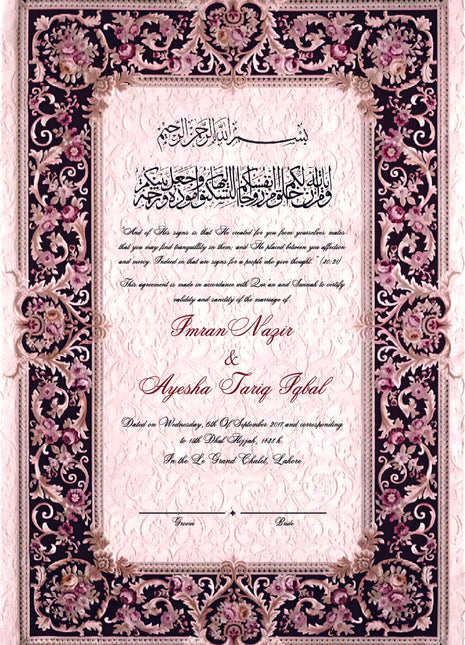 بسم الله الرحمن الرحيم
ومن آياته أن خلق لكم من أنفسكم أزواجا لتسكنوا إليها وجعل بينكم مودة ورحمة
"And of His signs is that He created for you from yourselves mates
that you may find tranquillity in them; and He placed between you affection
and mercy. Indeed in that are signs for a people who give thought."
This agreement is made in accordance with Qur'an and Sunnah to certify
validity and sanctity of the marriage of
Imran Nazir
&
Ayesha Tariq Iqbal
Dated on Wednesday, 6th Of September 2017 and corresponding
to 15th Dhul Hijjah, 1438 h.
In the Le Grand Chalet, Lahore
Groom Bride